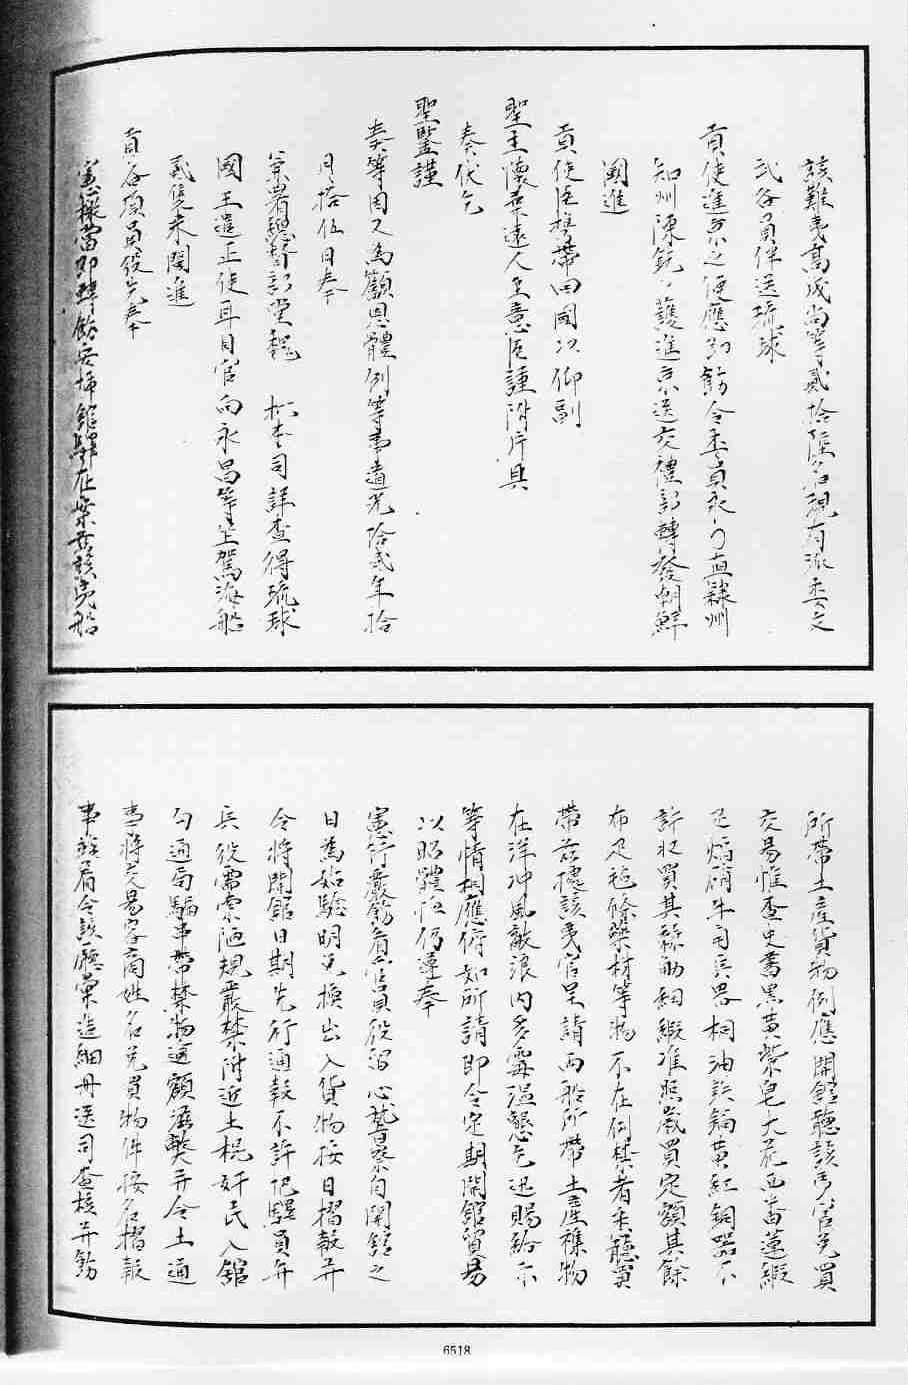 該難夷高成尚等貳拾陸名現有派委文
武各員伴送琉球
貢使進京之便應即飭令委員永定直隸州
知州陳銑護進京送交禮部轉發朝鮮
國進
貢使臣携帶回國以仰副
聖主懷柔遠人至意臣謹附片具
奏伏乞
聖鑒謹
奏等因又為籲恩體例等事道光拾貳年拾
月拾伍日奉
兼署總督部堂魏 批本司詳查得琉球
國王遣正使耳目官向永昌等坐駕海船
貳隻來閩進
貢各項員役先奉
憲檄當即轉飭安插館驛在案茲該夷船
所帶土產貨物例應開館聽該夷官兌買
交易惟查史書黑黃紫皂大花西番蓮緞
疋焰硝牛角兵器桐油鐵鍋黃紅銅器不
許收買其絲觔綢緞准照歲買定額其餘
布疋毡絛藥材等物不在例禁者悉聽買
帶茲據該夷官呈請兩船所帶土產襍物
在洋冲風敵浪內多霉濕懇乞迅賜給示
等情相應俯如所請即令定期開館貿易
以昭體恤仍遵奉
憲行嚴飭看守官員役留心稽察自開館之
日為始驗明兌換出入貨物按日摺報并
令將開館日期先行通報不許把驛員弁
兵役需索陋規嚴禁附近土棍奸民入館
勾通局騙串帶禁物逾額滋弊并令土通
事將交易客商姓名兌買物件按名摺報
事竣着令該廳彙造細冊送司查核并飭
6518